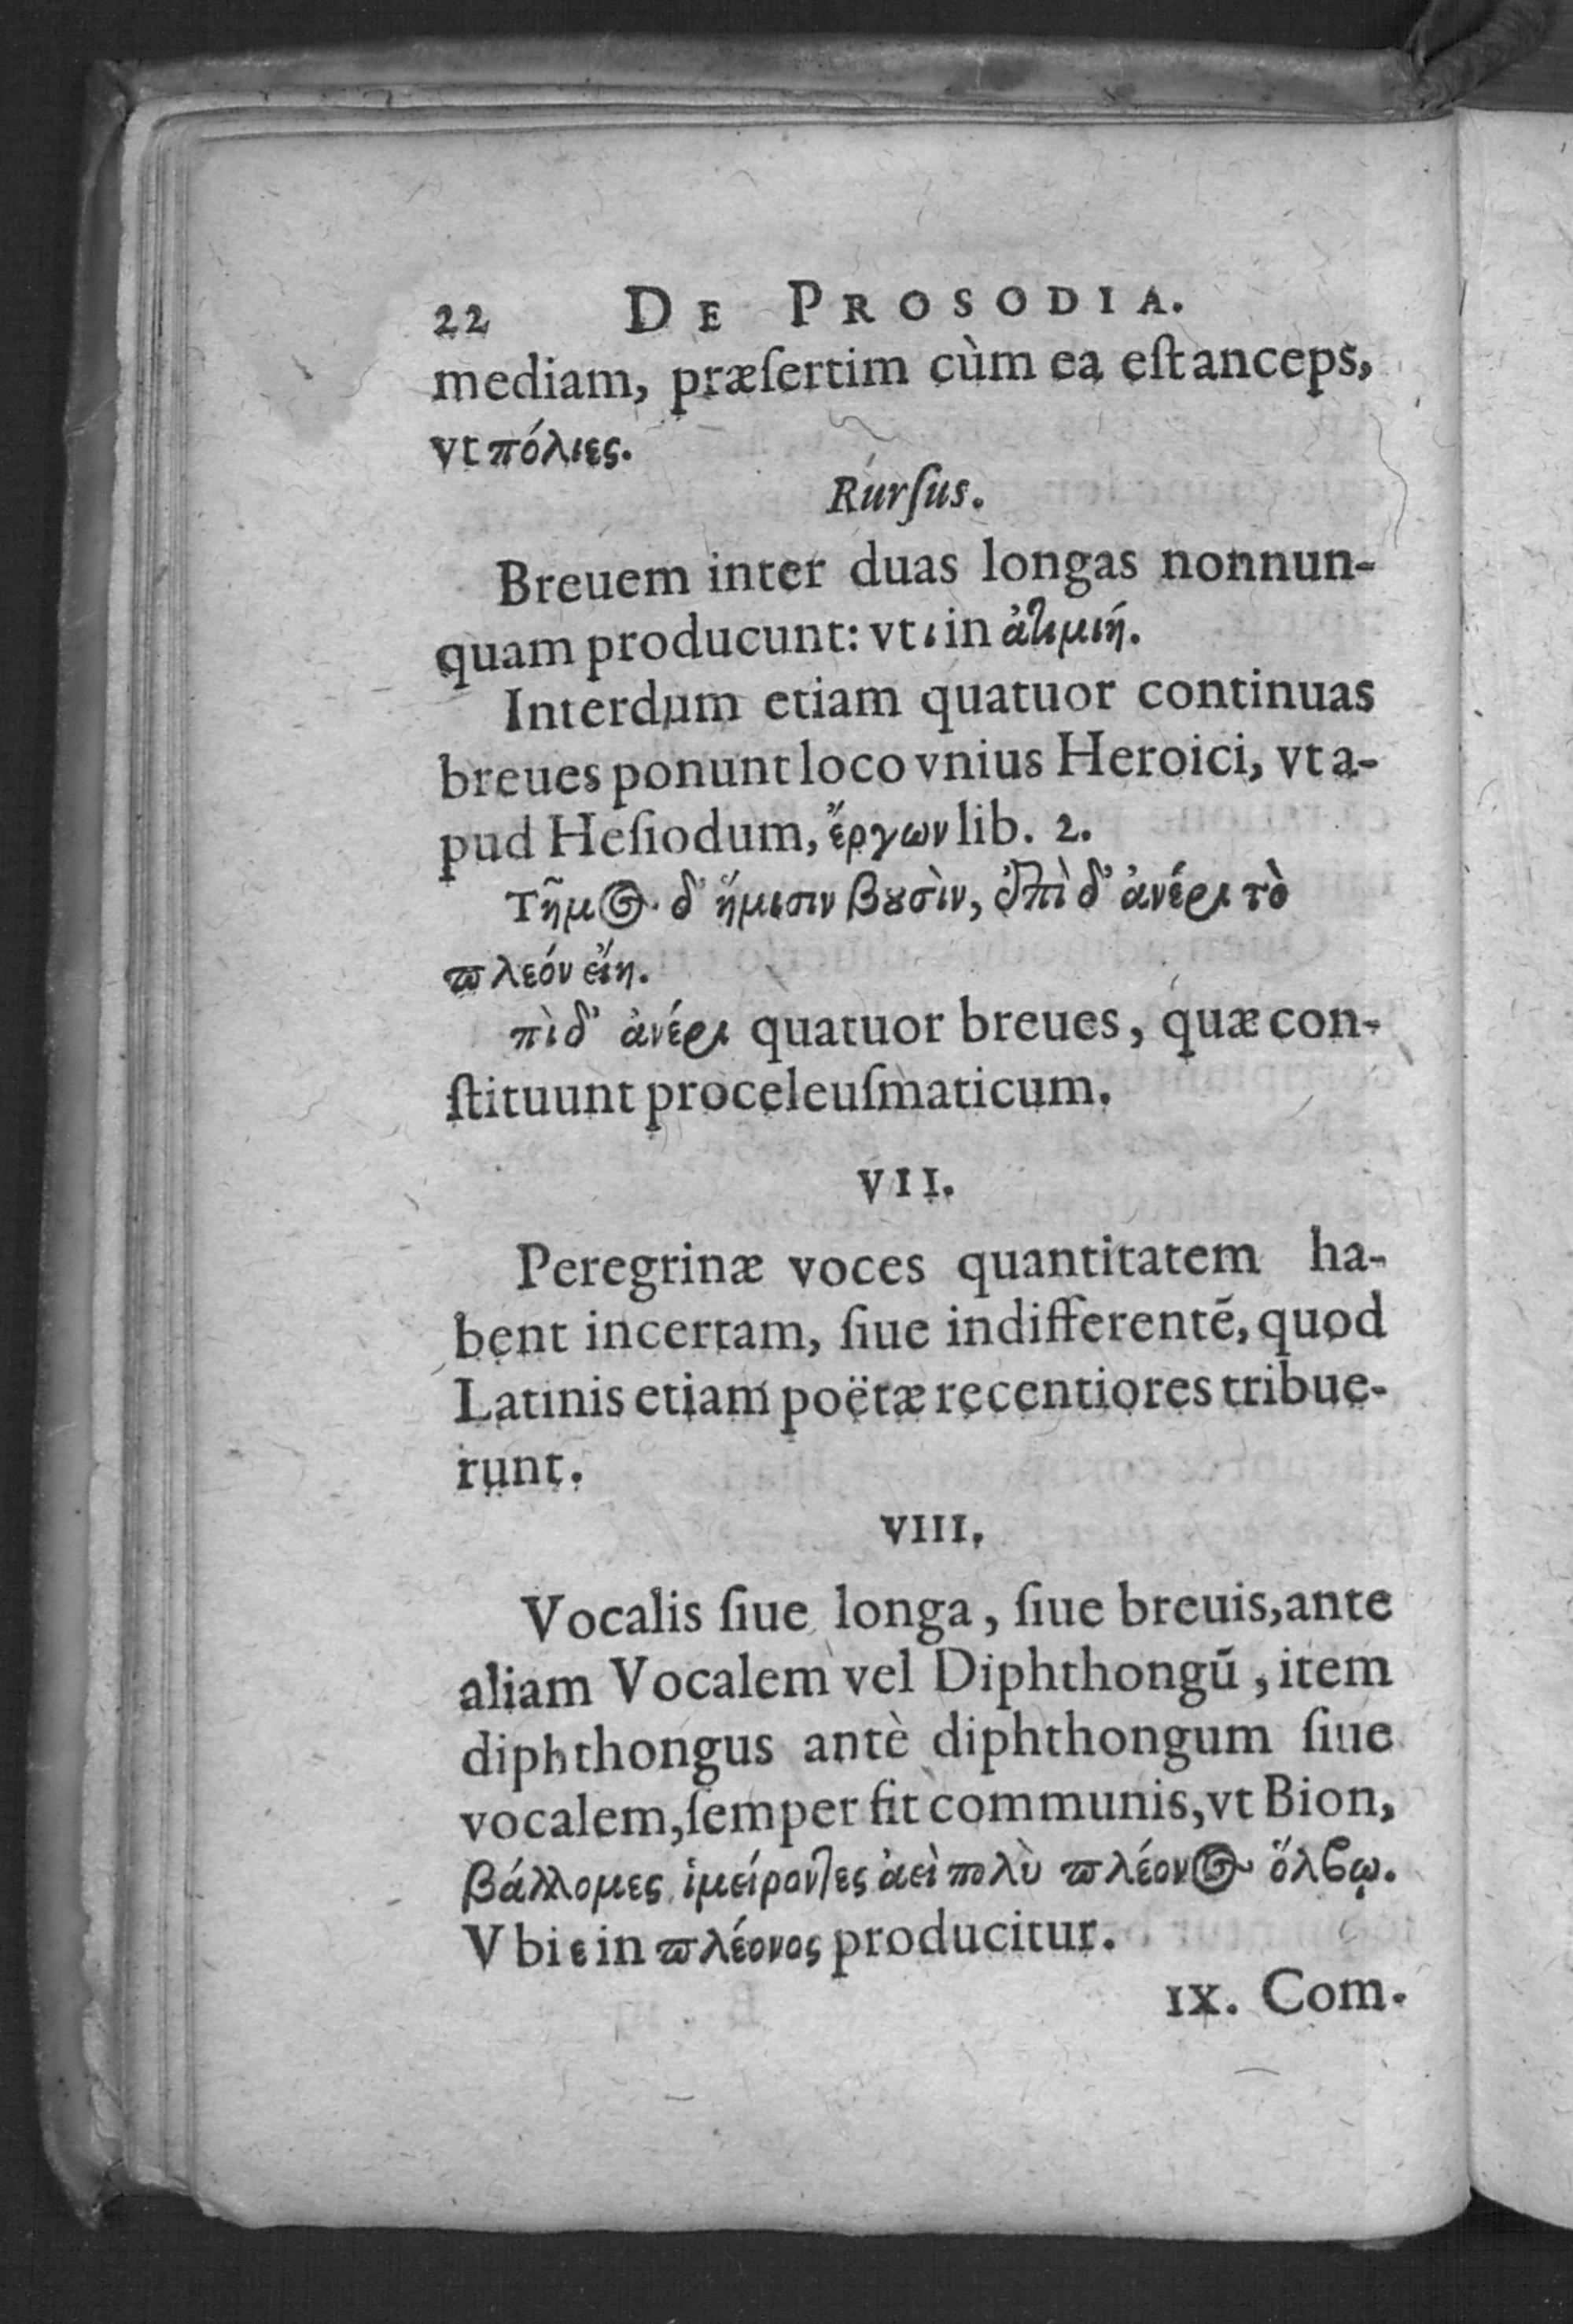 22 DE PROSODIA.
mediam, præſertim cùm ea eſt anceps,
vt πόλιες.
Rúrſus.
Breuem inter duas longas nonnun-
quam producunt: vt ι in ἀτιμιή.
Interdum etiam quatuor continuas
breues ponunt loco vnius Heroici, vt a-
pud Heſiodum, ἔργων lib. 2.
Τῆμος δ' ἥμισιν βȣσὶν, ἐπὶ δ' ἀνέρι τὸ
ϖλεόν εἴη.
πὶ δ' ἀνέρι quatuor breues, quæ con-
ſtituunt proceleuſmaticum.
VII.
Peregrinæ voces quantitatem ha-
bent incertam, ſiue indifferentē, quod
Latinis etiam poëtæ recentiores tribue-
runt.
VIII.
Vocalis ſiue longa, ſiue breuis, ante
aliam Vocalem vel Diphthongū, item
diphthongus antè diphthongum ſiue
vocalem, ſemper fit communis, vt Bion,
βάλλομες ἱμείροντες ἀεὶ πολὺ ϖλέονος ὄλϐῳ.
Vbi ε in ϖλέονος producitur.
IX. Com-